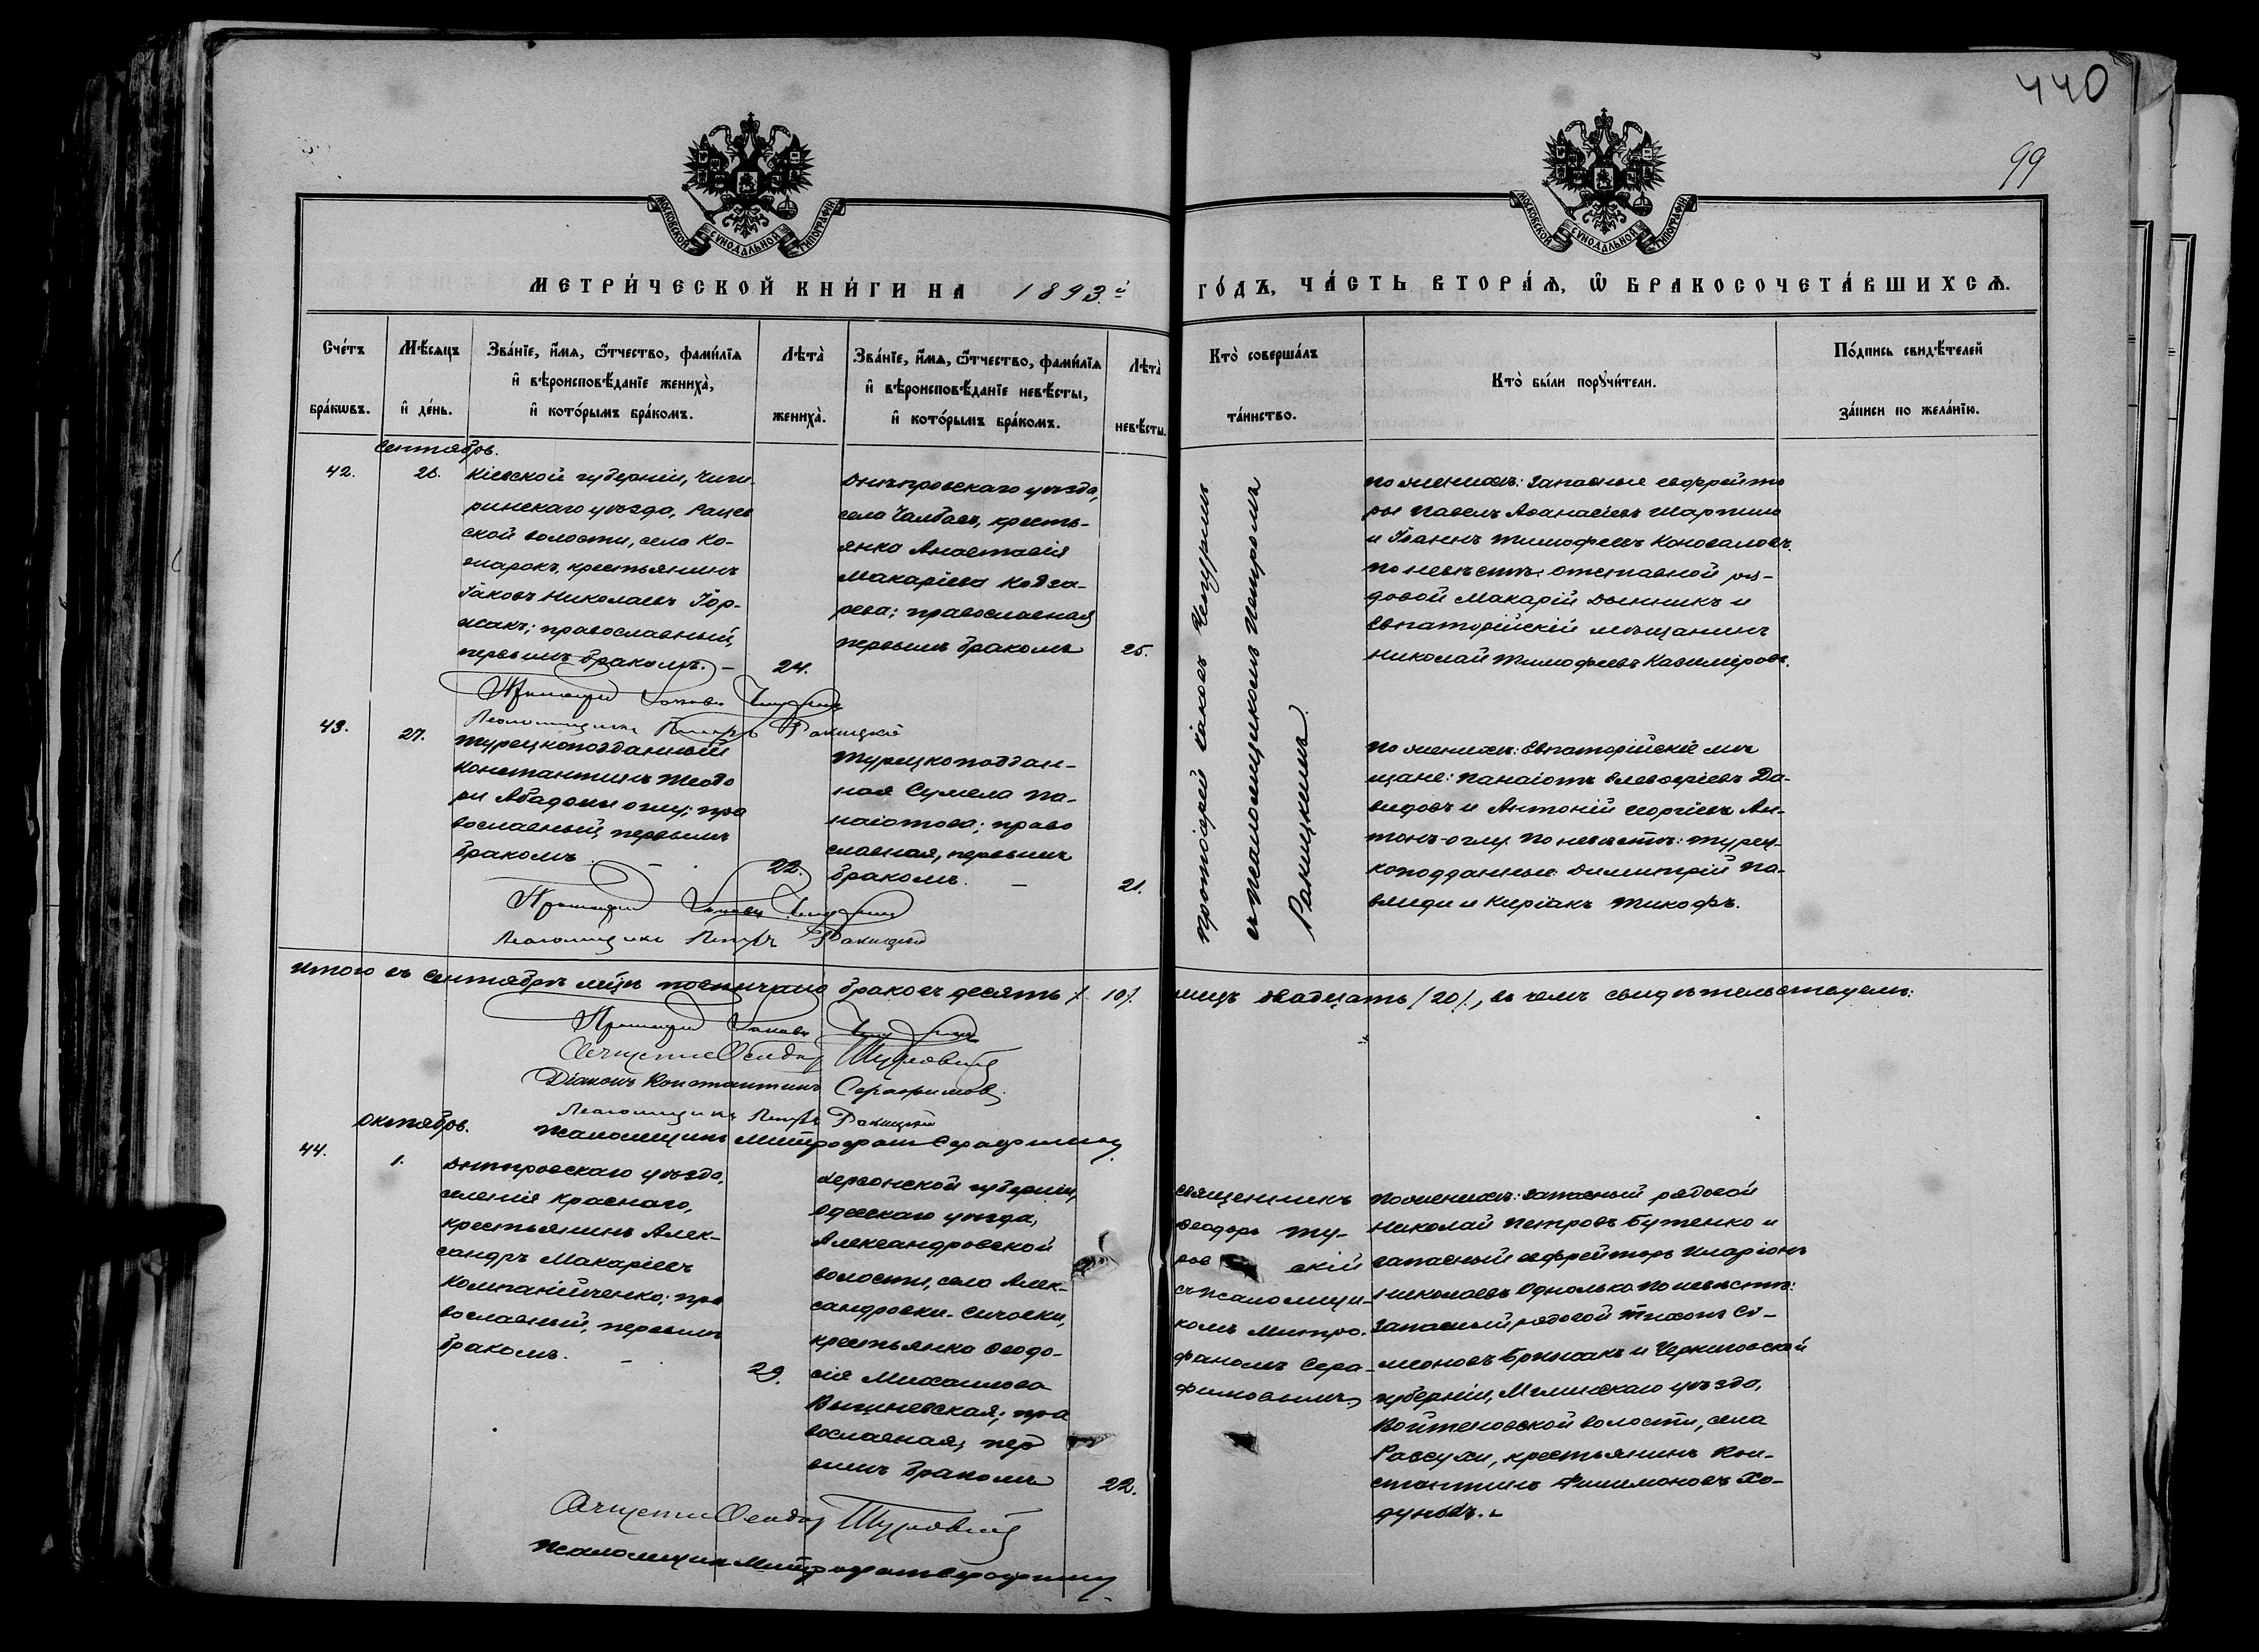 440
99
МОСКОВСКОЙ СѴНОДАЛЬНОЙ ТИПОГРАФІИ
МОСКОВСКОЙ СѴНОДАЛЬНОЙ ТИПОГРАФІИ
МЕТРИ́ЧЕСКОЙ КНИ́ГИ НА 1893.й
ГО́ДЪ, ЧА́СТЬ ВТОРА́Ѧ, Ѽ БРАКОСОЧЕТА́ВШИХСѦ.
Сче́тъ
бра́кѡвъ.
Мѣ́сѧцъ
и҆ де́нь.
Зва́нїе, и҆́мѧ, ѻ҆́тчество, фами́лїѧ
и҆ вѣроисповѣ́данїе жениха̀,
и҆ кото́рымъ бра́комъ.
Лѣта̀
жениха̀.
Зва́нїе, и҆́мѧ, ѻ҆́тчество, фами́лїѧ
и҆ вѣроисповѣ́данїе невѣ́сты,
и҆ кото́рымъ бра́комъ.
Лѣта̀
невѣ́сты.
Кто̀ соверша́лъ
та́инство.
Кто̀ бы́ли порꙋчи́тели.
По́дпись свидѣ́телей
за́писи по жела́нїю.
Сентябрь.
42.
26.
Кіевской губерніи, Чиги-
ринскаго уѣзда, Рацев
ской волости, села Ко-
жарокъ, крестьянинъ
Іаковъ Николаевъ Гор-
жакъ; православный,
первымъ бракомъ. –
24.
Днѣпровскаго уѣзда,
села Чалбасъ, кресть-
янка Анастасія
Макаріева Кобза-
рева; православная
первымъ бракомъ
25.
Протоіерей Іаковъ Чепуринъ
съ псаломщикомъ Петромъ
Ракицкимъ
По женихѣ: запасные ефрейто
ры Павелъ Аѳанасіевъ Шаршино
и Іоаннъ Тимофеевъ Коноваловъ.
По невѣстѣ: отставной ря-
довой Макарій Дынникъ и
Евпаторійскій мѣщанинъ
Николай Тимофеевъ Казиміровъ.
Протоіерей Іаковъ Чепуринъ
Псаломщикъ Петръ Ракицкій
43.
27.
Турецкоподданный
Константинъ Теодо
ри Абаджи оглу; пра
вославный, первымъ
бракомъ. –
22.
Турецкоподдан-
ная Сумела Па-
наіотова; право
славная, первымъ
бракомъ. –
21.
По женихѣ: Евпаторійскіе мѣ
щане: Панаіотъ Елевѳеріевъ Да-
видовъ и Антоній Георгіевъ Ан-
тонъ-оглу. По невѣстѣ: турец-
коподданные Димитрій Па-
влиди и Киріакъ Тикофъ.
Протоіерей Іаковъ Чепуринъ
Псаломщикъ Петръ Ракицкій
Итого въ сентябрѣ мѣцѣ повѣнчано браковъ десять /10/.
лицъ двадцать /20/., въ чемъ свидѣтельствуемъ:
Протоіерей Іаковъ Чепуринъ
Священникъ Ѳеодоръ Туровскій
Діаконъ Константинъ Серафимовъ.
Псаломщикъ Петръ Ракицкій
Псаломщикъ Митрофанъ Серафимовъ.
Октябрь.
44.
1.
Днѣпровскаго уѣзда,
селенія Краснаго,
крестьянинъ Алек-
сандръ Макаріевъ
Компанійченко; пра
вославный, первымъ
бракомъ. –
29.
Херсонской губерніи,
Одесскаго уѣзда,
Александровской
волости, села Алек-
сандровки-Сычовки,
крестьянка Ѳеодо-
сія Михаилова
Вышневская; пра
вославная, пер
вымъ бракомъ
22.
Священникъ
Ѳеодоръ Ту-
ров скій
съ псаломщи-
комъ Митро-
фаномъ Сера-
фимовымъ
По женихѣ: запасный рядовой
Николай Петровъ Бутенко и
запасный ефрейторъ Иларіонъ
Николаевъ Однолько. По невѣстѣ:
запасный рядовой Тихонъ Си-
меоновъ Брижакъ и Черниговской
губерніи, Мглинскаго уѣзда,
волости, села
Рассухи, крестьянинъ Кон-
стантинъ Филимоновъ Хо-
дуновъ.
Священникъ Ѳеодоръ Туровскій
Псаломщикъ Митрофанъ Серафимовъ